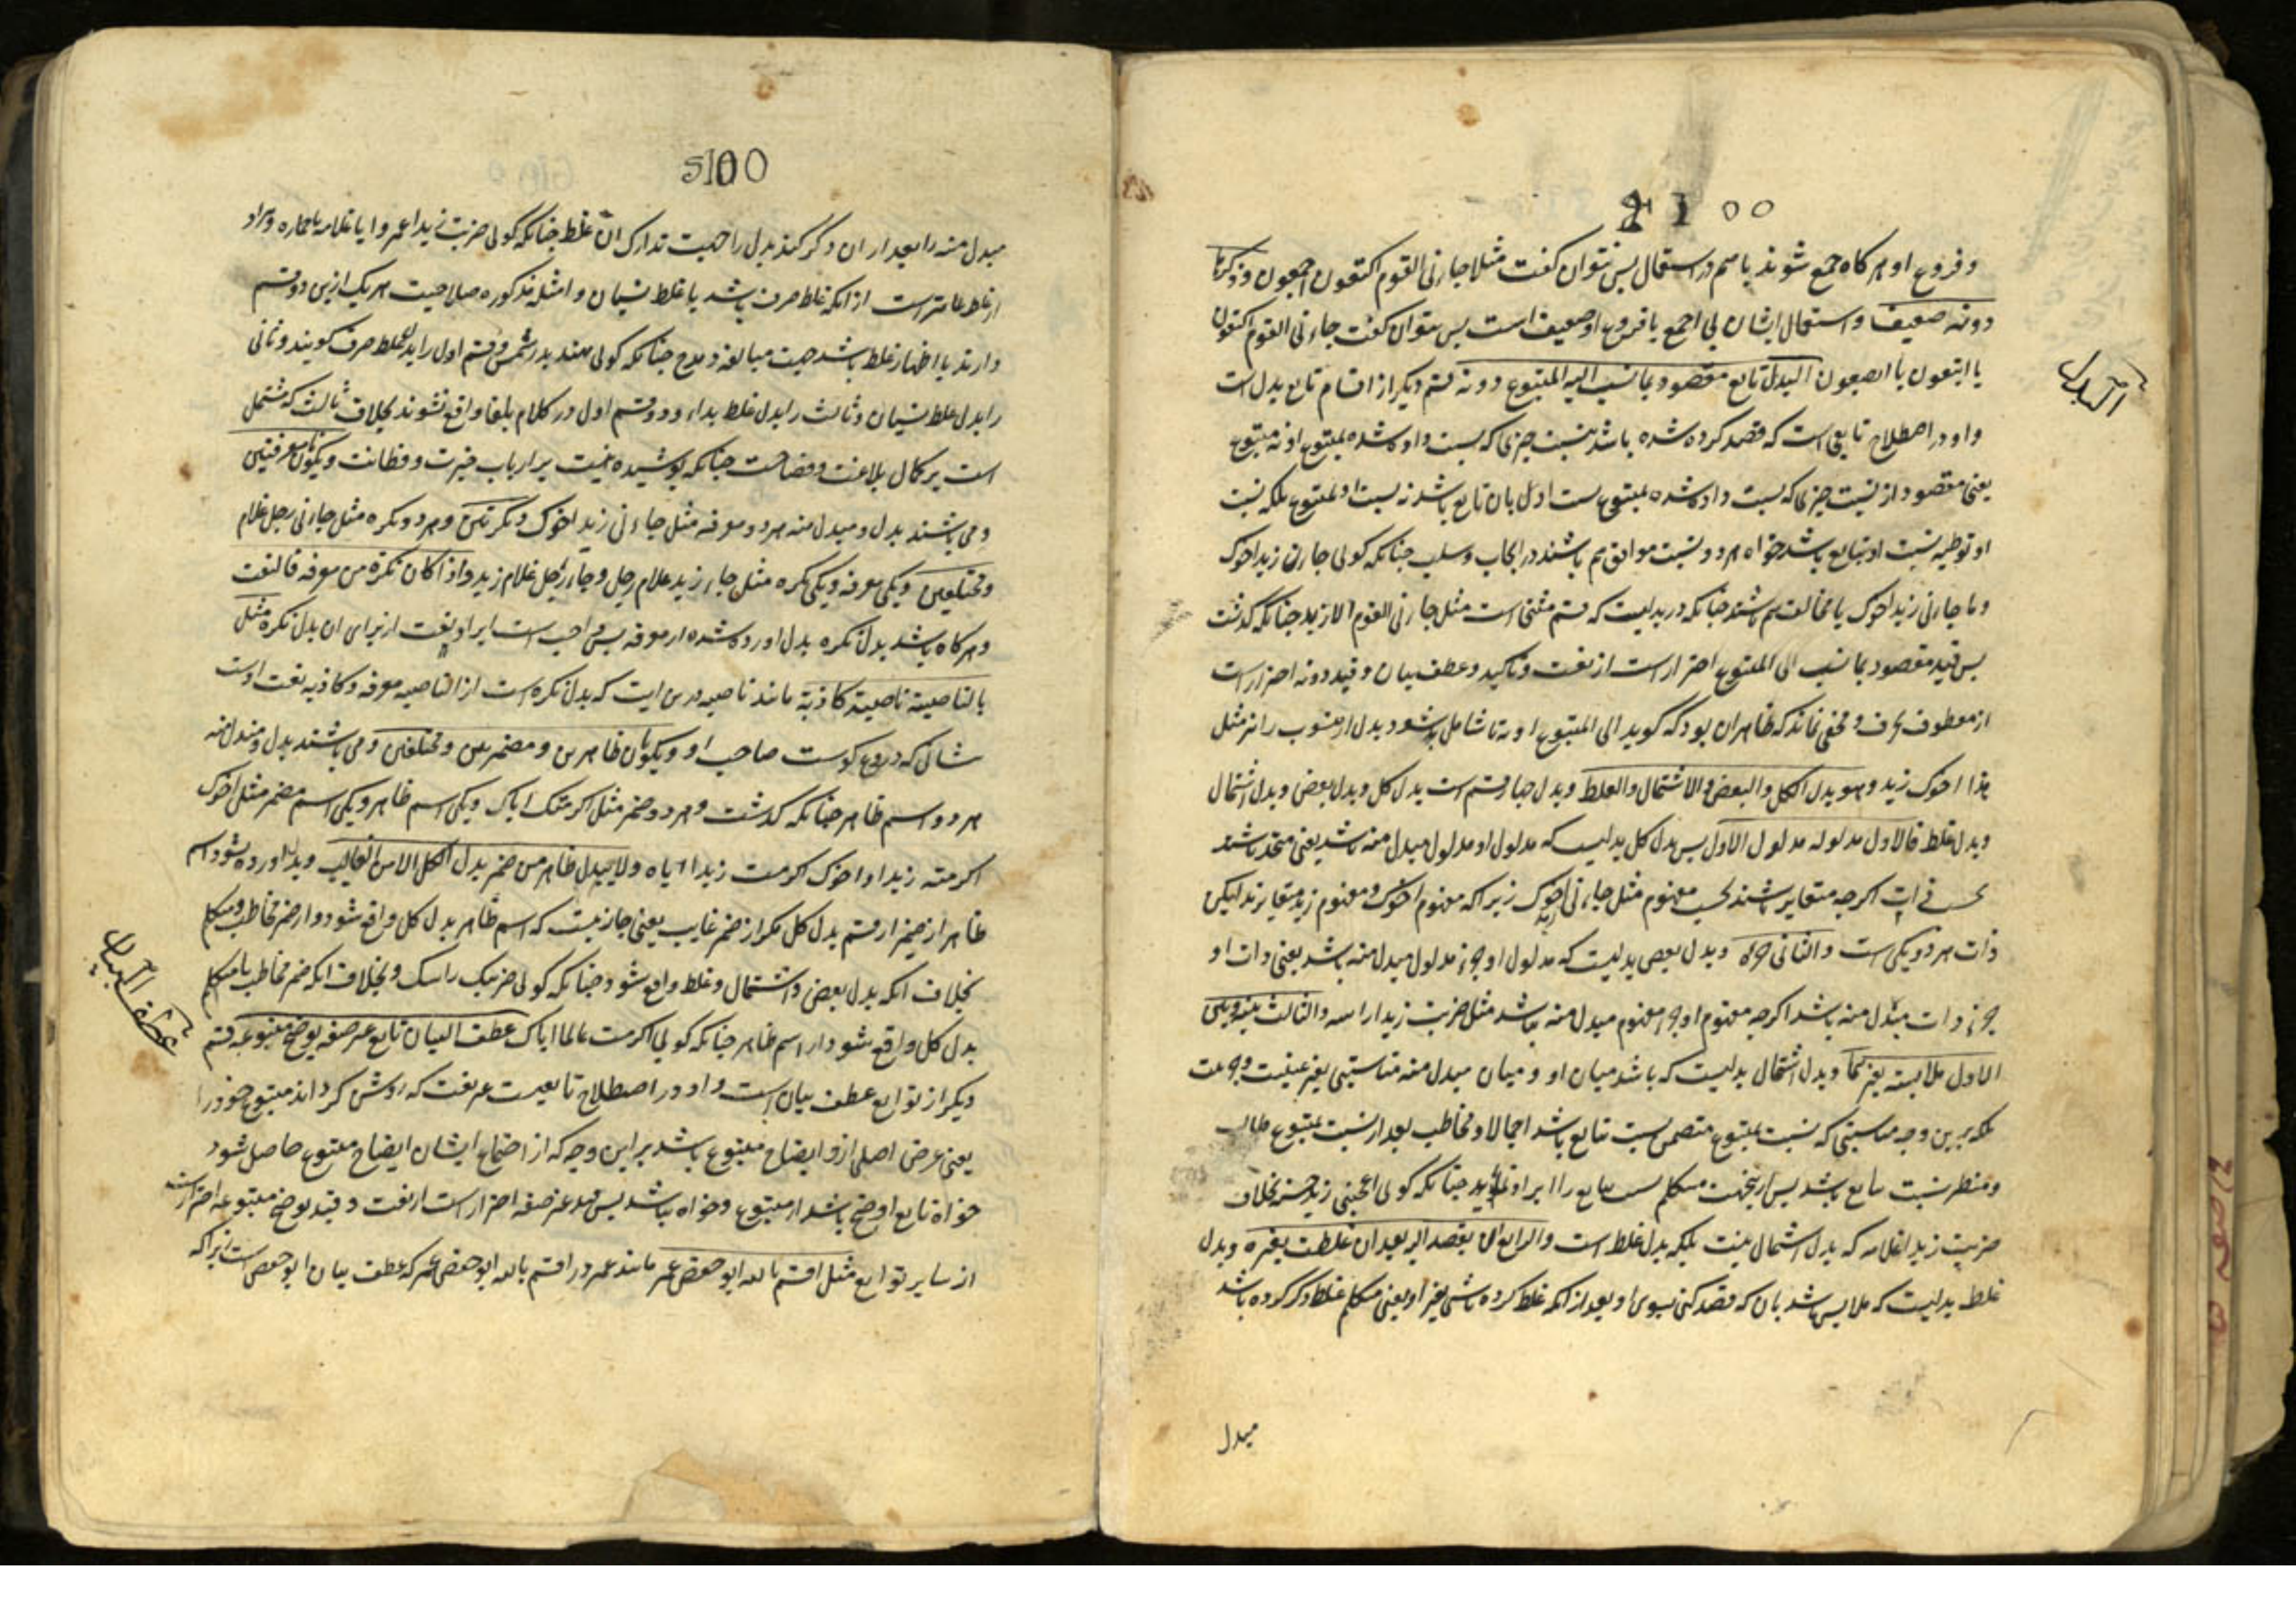 و فروع او هر کاه جمع شوند باهم در استعمال پس نتوان کفت مثلا جاءنی القوم اکتعون اجمعون و ذکرها
دونه ضعیف و استعمال ایشان بی اجمع یا فروع او ضعیف است پس نتوان کفت جاءنی القوم اکتعون
یا ابتعون یا ابصعون البدل تابع مقصود بما نسب الیه المتبوع دونه قسم دیکر از اقسام تابع بدل است
و او در اصطلاح تابعی است که قصد کرده شده باشد بنسبت چیزی که نسبت داده شده بمتبوع او نه متبوع
یعنی مقصود از نسبت چیزی که نسبت داده شده بمتبوع نسبت اوست بان تابع باشد نه نسبت او بمتبوع بلکه نسبت
او توطیه نسبت او بتابع باشد خواه هر دو نسبت موافق هم باشند در ایجاب و سلب چنانکه کوئی جاءنی زید اخوک
و ما جاءنی زید اخوک یا مخالف هم باشند چنانکه در بدلیست که قسم مستثنی است مثل ما جاءنی القوم الا زید چنانکه کذشت
پس قید مقصود بما نسب الی المتبوع احتراز است از نعت و تاکید و عطف بیان و قید دونه احتراز است
از معطوف بحرف و مخفی نماند که ظاهر ان بود که کوید الی المتبوع او به تا شامل شود بدل از منسوب را نیز مثل
هذا اخوک زید و هو بدل الکل و البعض و الاشتمال و الغلط و بدل چهار قسم است بدل کل و بدل بعض و بدل اشتمال
و بدل غلط فالاول مدلوله مدلول الاول پس بدل کل بدلیست که مدلول او مدلول مبدل منه باشد یعنی متحد باشند
بحسب ذات اکرچه متغایر باشند بحسب مفهوم مثل جاءنی زید اخوک زیرا که مفهوم اخوک و مفهوم زید متغایرند لیکن
ذات هر دو یکی است و الثانی جزؤه و بدل بعض بدلیست که مدلول او جزء مدلول مبدل منه باشد یعنی ذات او
جزء ذات مبدل منه باشد اکرچه مفهوم او جزء مفهوم مبدل منه نباشد مثل ضربت زیدا راسه و الثالث بینه و بین
الاول ملابسة بغیرهما و بدل اشتمال بدلیست که باشد میان او و میان مبدل منه مناسبتی بغیر عینیت و جزئیت
بلکه برین وجه مناسبتی که نسبت بمتبوع متضمن نسبت بتابع باشد اجمالا و مخاطب بعد از نسبت بمتبوع طالب
و منتظر نسبت بتابع باشد پس ازینجهت متکلم نسبت بتابع را ایراد نماید چنانکه کوئی اعجبنی زید حسنه بخلاف
ضربت زیدا غلامه که بدل اشتمال نیست بلکه بدل غلط است و الرابع ان یقصد الیه بعد ان غلطت بغیره و بدل
غلط بدلیست که ملابس باشد بان که قصد کنی بسوی او بعد از انکه غلط کرده باشی بغیر او یعنی متکلم غلط ذکر کرده باشد
مبدل
البدل
مبدل منه را بعد از ان ذکر کند بدل را جهت تدارک ان غلط چنانکه کوئی ضربت زیدا عمروا یا غلامه یا حماره و مراد
از غلط عامتر است از انکه غلط صرف باشد یا غلط نسیان و امثله مذکوره صلاحیت هر یک ازین دو قسم
دارند یا اظهار غلط باشد جهت مبالغه و مدح چنانکه کوئی هند بدر شمس و قسم اول را بدل غلط صرف کویند و ثانی
را بدل غلط نسیان و ثالث را بدل غلط بدا و دو قسم اول در کلام بلغا واقع نشوند بخلاف ثالث که مشتمل
است بر کمال بلاغت و فصاحت چنانکه پوشیده نیست بر ارباب خبرت و فطانت و یکونان معرفتین
و می باشند بدل و مبدل منه هر دو معرفه مثل جاءنی زید اخوک و نکرتین و هر دو نکره مثل جاءنی رجل غلام
و مختلفین و یکی معرفه و یکی نکره مثل جاء زید غلام رجل و جاء رجل غلام زید و اذا کان نکرة من معرفة فالنعت
و هر کاه باشد بدل نکره بدل اورده شده از معرفه پس واجب است ایراد نعت از برای ان بدل نکره مثل
بالناصیة ناصیة کاذبة مانند ناصیه درین ایت که بدل نکره است از الناصیه معرفه و کاذبه نعت اوست
شانی که دروغ کوست صاحب او و یکونان ظاهرین و مضمرین و مختلفین و می باشند بدل و مبدل منه
هر دو اسم ظاهر چنانکه کذشت و هر دو ضمیر مثل اکرمتک ایاک و یکی اسم ظاهر و یکی اسم مضمر مثل اخوک
اکرمته زیدا و اخوک اکرمت زیدا ایاه و لا یبدل ظاهر من مضمر بدل الکل الا من الغایب و بدل اورده نشود اسم
ظاهر از ضمیر از قسم بدل کل مکر از ضمیر غایب یعنی جایز نیست که اسم ظاهر بدل کل واقع شود از ضمیر مخاطب و متکلم
بخلاف انکه بدل بعض و اشتمال و غلط واقع شود چنانکه کوئی ضربتک راسک و بخلاف انکه ضمیر مخاطب یا متکلم
بدل کل واقع شود از اسم ظاهر چنانکه کوئی اکرمت عالما ایاک عطف البیان تابع غیر صفة یوضح متبوعه قسم
دیکر از توابع عطف بیان است و او در اصطلاح تابعیست غیر نعت که روشن کرداند متبوع خود را
یعنی غرض اصلی ازو ایضاح متبوع باشد بر این وجه که از اجتماع ایشان ایضاح متبوع حاصل شود
خواه تابع اوضح باشد از متبوع و خواه نباشد پس قید غیر صفه احتراز است از نعت و قید یوضح متبوعه احتراز است
از سایر توابع مثل اقسم بالله ابو حفص عمر مانند عمر در اقسم بالله ابو حفص عمر که عطف بیان ابو حفص است زیرا که
عطف البیان